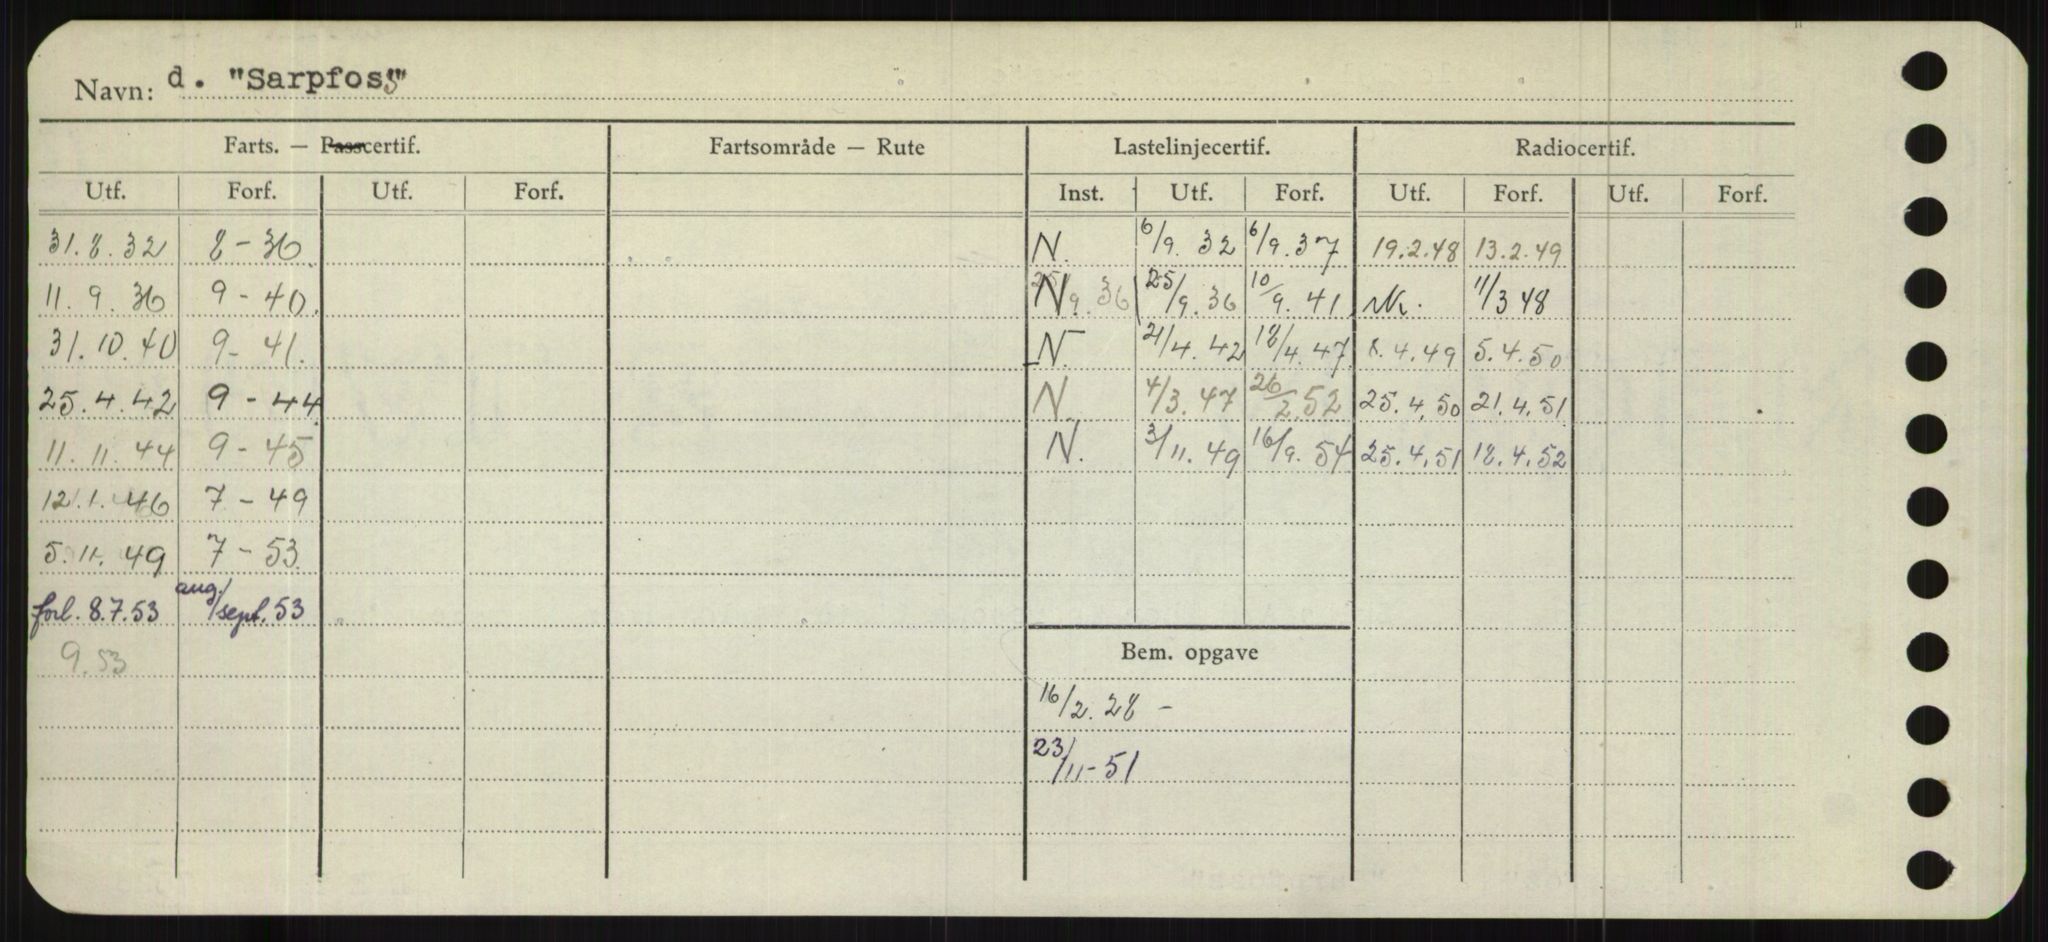 Navn: d. "Sarpfoss"
Farts. — Passcertif. Fartsområde — Rute Lastelinjecertif. Radiocertif.
Utf. Forf. Utf. Forf. Inst. Utf. Forf. Utf. Forf. Utf. Forf.
31.8.32 8-36 N. 6/9. 32 6/9. 37 19.2.48 13.2.49
11.9.36 9-40. N 25/9. 36 25/9. 36 10/9. 41 11/3 48
31.10.40 9-41. N. 21/4. 42 18/4. 47 8.4.49 5.4.50
25.4.42 9-44 N. 4/3. 47 26/2. 52 25.4.50 21.4.51
11.11.44 9-45 N. 3/11. 49 16/9. 54 25.4.51 18.4.52
12.1.46 7-49
5.11.49 7-53.
forl. 8.7.53 aug./sept. 53
9.53
Bem. opgave
16/2. 28 -
23/11-51